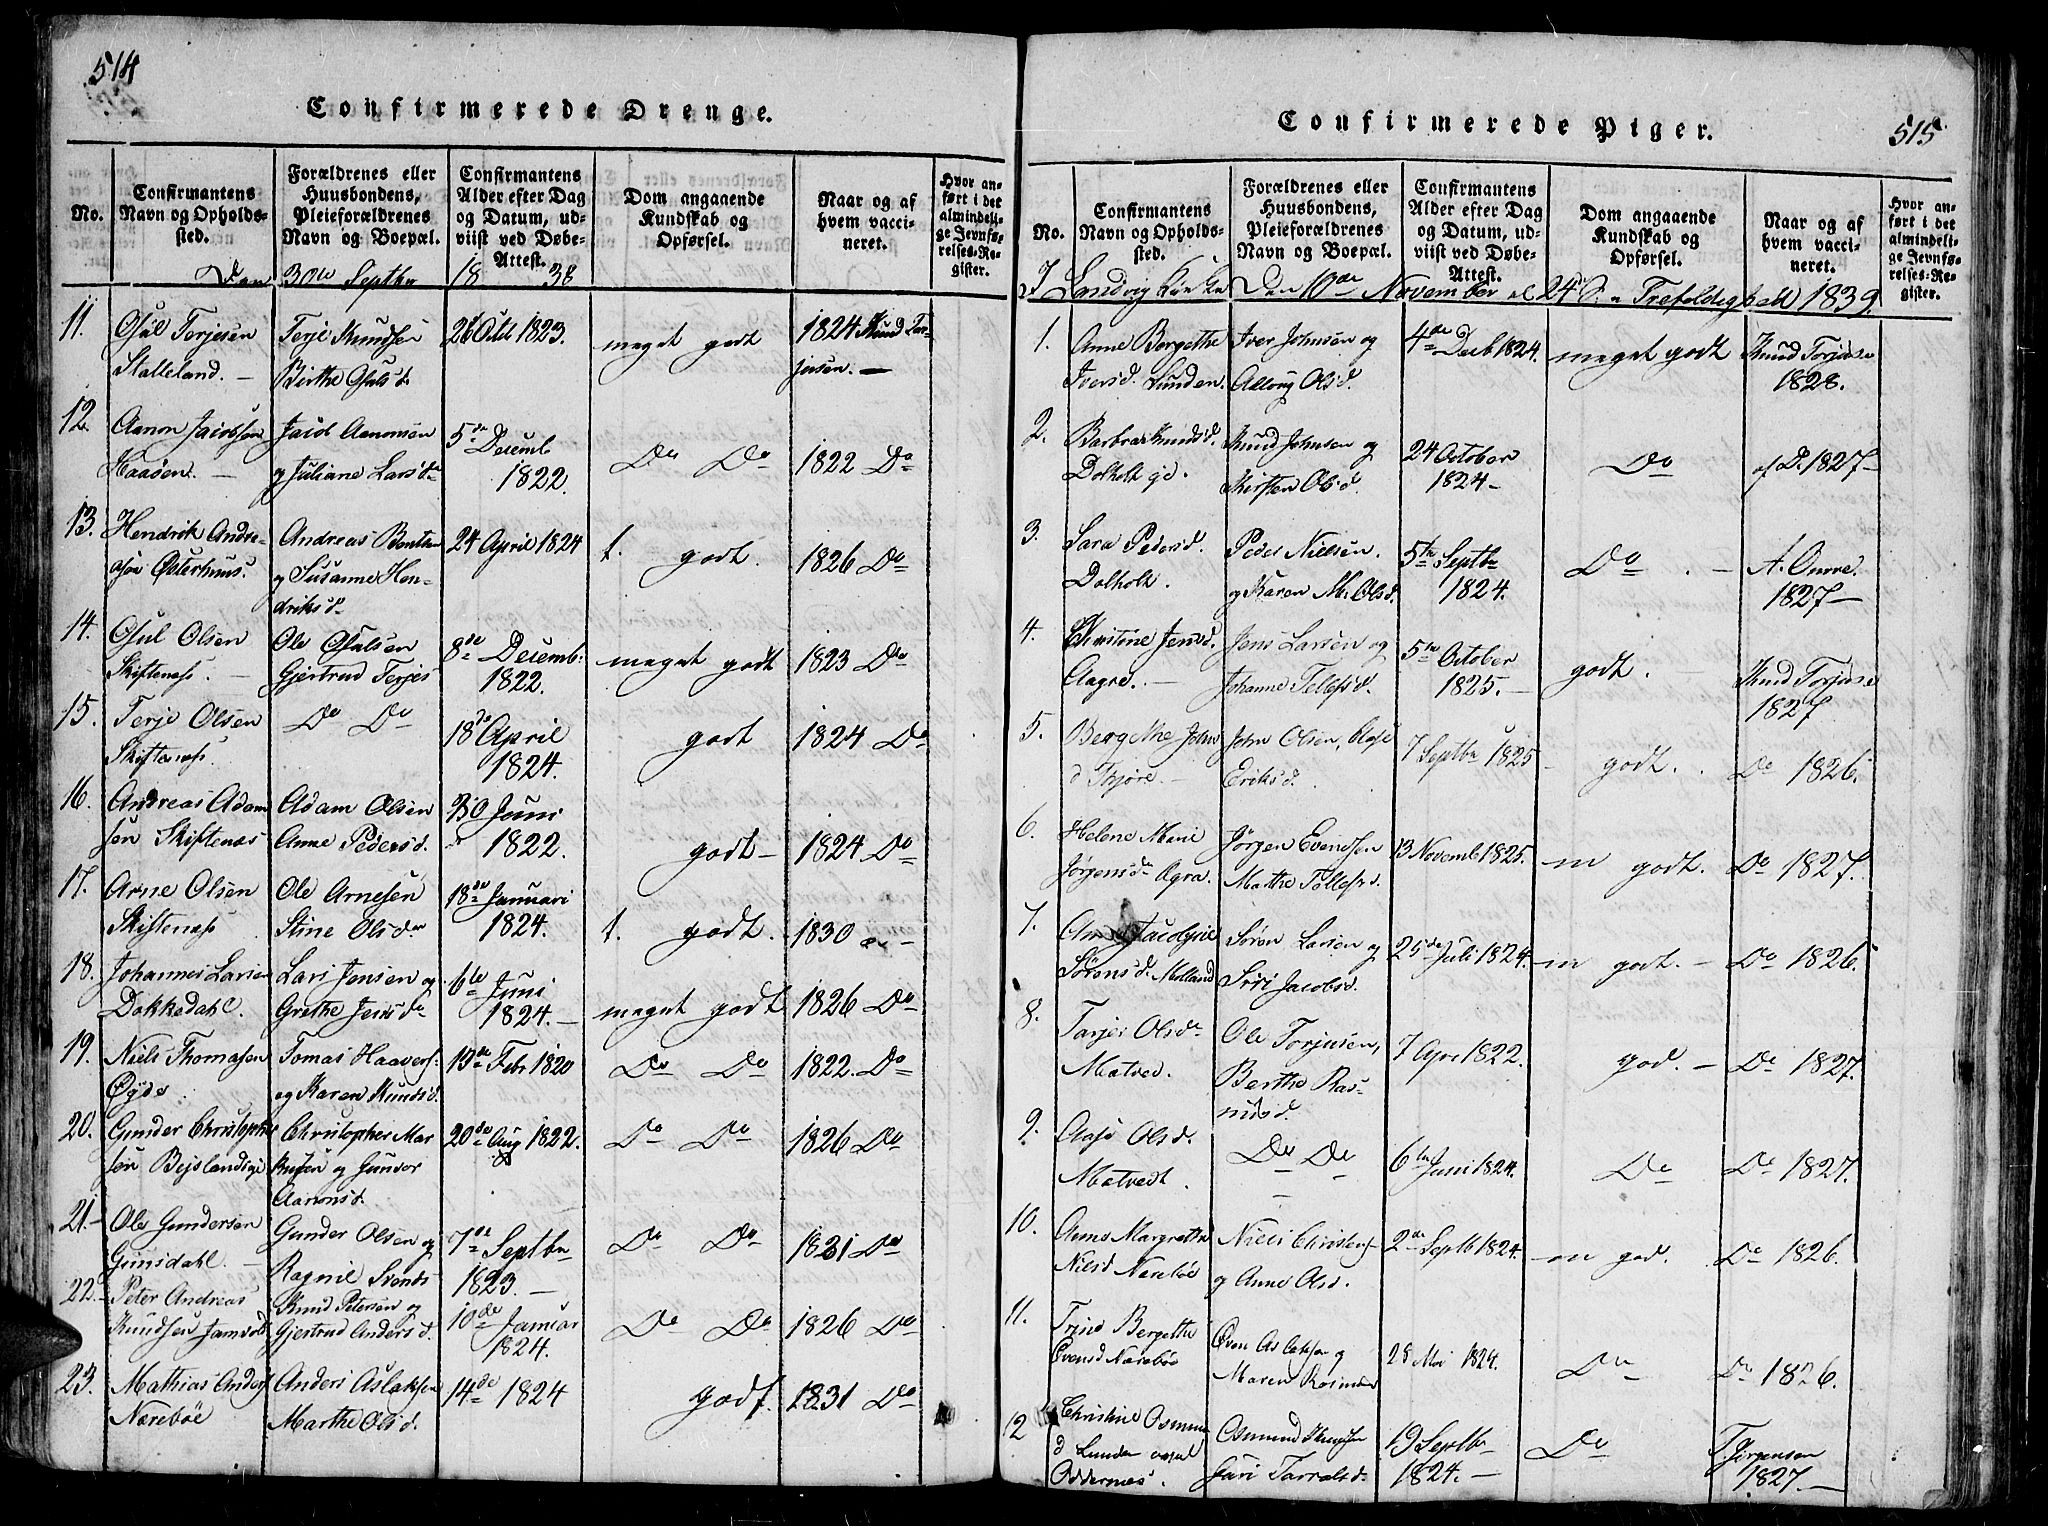 514
Confirmerede Drenge.
No.
Confirmantens Navn og Opholdssted.
Forældrenes eller Huusbondens, Pleieforældrenes Navn og Boepæl.
Confirmantens Alder efter Dag og Datum, udviist ved Døbe-Attest.
Dom angaaende Kundskab og Opførsel.
Naar og af hvem vaccineret.
Hvor anført i det almindelige Jevnførelses-Register.
Den 30te Septbr 1838
11. Osul Terjesen Terje Knudsen 26 Octb 1823. meget godt 1824 Knud Torjersen. —
Stalleland. — Birthe Osulsd.
12. Aanon Jacobsen Jacob Aanonsen 5te Decemb 1822. Do Do 1822 Do
Haaden. — og Juliane Larsd.
13. Hendrik Andreasen Andreas Bentsen 24 April 1824 t. godt. 1826 Do
Østerhuus. og Susanne Hendriksd.
14. Osul Olsen Ole Osulsen 8de Decemb: 1822. meget godt 1823 Do
Skiftenæs. — Gjertrud Terjes
15. Terje Olsen Do Do 18de April 1824. godt 1824 Do
Skiftenæs.
16. Andreas Adamsen Adam Olsen 30 Juni 1822. godt — 1824 Do
Skiftenæs Anne Pedersd.
17. Arne Olsen Ole Arnesen 18de Januari 1824. t. godt. 1830
Skiftenæs Stine Olsd.
18. Johannes Larsen Lars Jensen og 6te Juni 1824. — meget godt 1826 Do
Dokkedahl. Grethe Jensd.
19. Niels Thomasen Tomas Haavers: 19de Febr 1820 Do Do 1822. Do
Øyde og Karen Knudsd.
20. Gunder Christophersen Christopher Markusen og Gunvor Aanonsd. 20de Aug 1822. Do Do 1826 Do
21. — Ole Gundersen Gunder Olsen og 7de Septbr 1823. — Do Do 1821 Do
Grimsdahl. — Ragnil Svends
22. — Peter Andreas Knud Petersen og 10de Januar 1824. Do Do 1826 Do
Knudsen Gjertrud Andersd.
23. Mathias Anders Anders Aslaksen 14de 1824 godt. 1831 Do
Nærebøe Marthe Olsd.
515
Confirmerede Piger.
No.
Confirmantens Navn og Opholdssted.
Forældrenes eller Huusbondens, Pleieforældrenes Navn og Boepæl.
Confirmantens Alder efter Dag og Datum, udviist ved Døbe-Attest.
Dom angaaende Kundskab og Opførsel.
Naar og af hvem vaccineret.
Hvor anført i det almindelige Jevnførelses-Register.
I Landvig Kirke Den 10de November el 24de S. e Trefoldighed 1839.
1. Anne Bergethe Iver Johnsen og 4de Decb 1824. meget godt Knud Torjuse 1828.
Iversd. Lunden. Asloug Olsd.
2. Barbra Knudsd. Knud Johnsen og 24 October 1824 — Do af D. 1827 —
Dolholt Kirsten Olsd.
3. Sara Pedersd. Peder Nielsen 5te Septbr 1824. Do. — A. Omre. 1827 —
Dolholt. og Karen M. Olsd.
4. Christine Jensd. Jens Larsen og 5te October 1825. — godt. — Knud Torjuse 1827
Aagre. — Johanne Tellefsd.
5. Bergethe Johns John Olsen, 7 Septbr 1825 — godt. . Do 1826.
d Eriksd.
6. Helene Marie Jørgen Evendsen 13 Novemb 1825. — m godt. Do 1827.
Jørgensd. Agra. Marthe Tellefsd.
7. Anne Jacobine Søren Larsen og 25de Juli 1824. — m godt. — Do 1826.
Sørensd. Molland Siri Jacobsd.
8. Tarjer Olsd. Ole Torjusen, 7 Apr 1822. god. — Do 1827.
Matved. Berthe Rasmusd.
9. Aase Olsd. Do Do 6te Juni 1824. Do Do 1827.
Matvedt.
10. Anne Margrethe Niels Christens 2de Septb 1824. — m god. Do 1826.
Nielsd Nærebøe og Anne Olsd.
11. Trine Bergethe Even Aslaksen og 28 Mai 1824. Do Do 1826.
Evensd Nærebøe Maren
12 Christine Osmunds Osmund Knudsen 19 Septbr 1824. — Do T Jørgensen 1827. —
d Lunden Kari Tarralsd.
Oddernes.